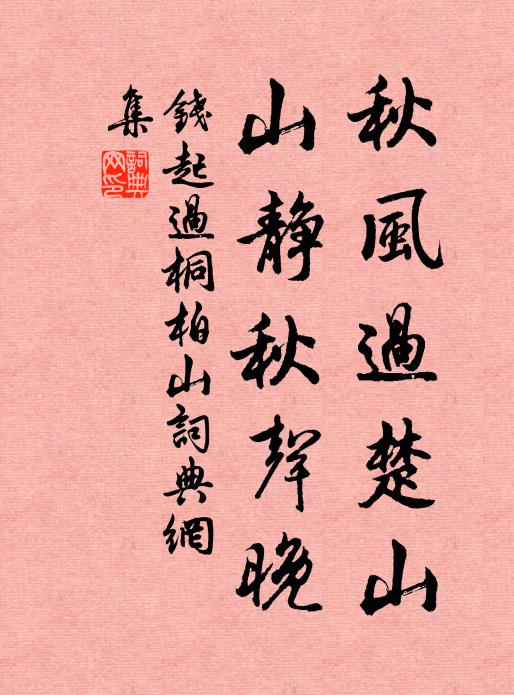 秋風過楚山
山靜秋聲晚
錢起過桐柏山詞典網
集
詞典網印